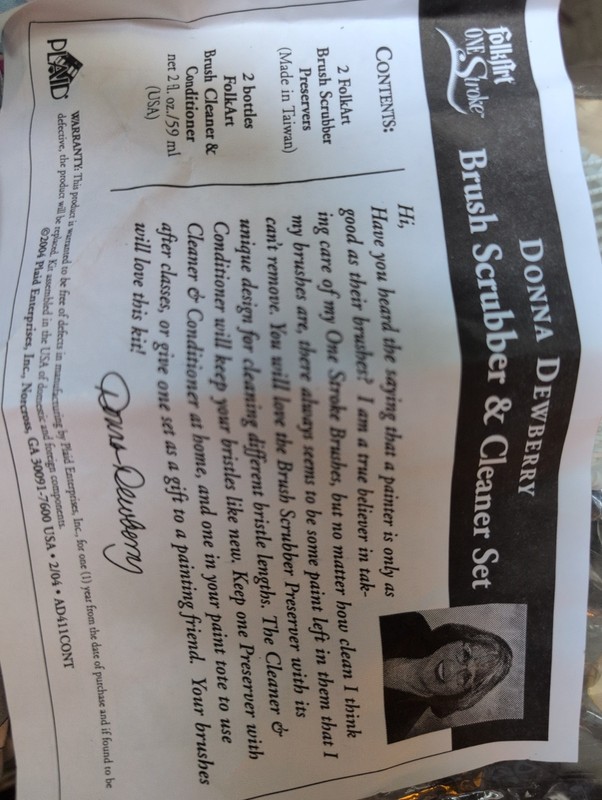 DONNA DEWBERRY
FolkArt
ONE Stroke
Brush Scrubber & Cleaner Set
CONTENTS:
2 FolkArt
Brush Scrubber
Preservers
(Made in Taiwan)
2 bottles
FolkArt
Brush Cleaner &
Conditioner
net 2 fl. oz./59 ml
(USA)
Hi,
Have you heard the saying that a painter is only as
good as their brushes? I am a true believer in tak-
ing care of my One Stroke Brushes, but no matter how clean I think
my brushes are, there always seems to be some paint left in them that I
can't remove. You will love the Brush Scrubber Preserver with its
unique design for cleaning different bristle lengths. The Cleaner &
Conditioner will keep your bristles like new. Keep one Preserver with
Cleaner & Conditioner at home, and one in your paint tote to use
after classes, or give one set as a gift to a painting friend. Your brushes
will love this kit!
Donna Dewberry
PLAID
WARRANTY: This product is warranted to be free of defects in manufacturing by Plaid Enterprises, Inc., for one (1) year from the date of purchase and if found to be
defective, the product will be replaced. Kit assembled in the USA of domestic and foreign components.
©2004 Plaid Enterprises, Inc., Norcross, GA 30091-7600 USA • 2/04 • AD411CONT